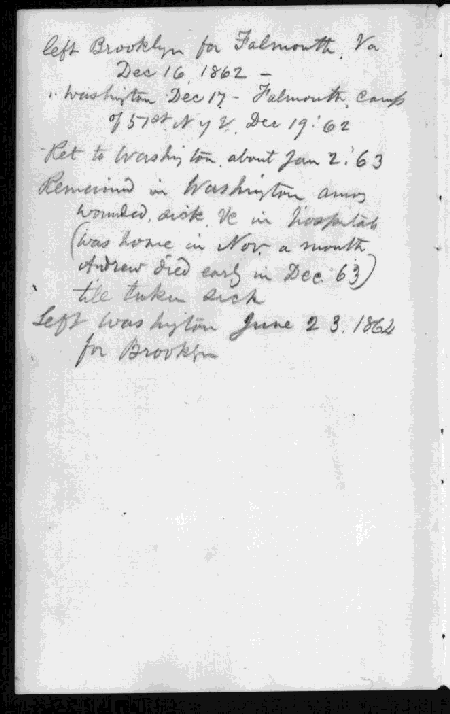 left Brooklyn for Falmouth, Va
Dec 16, 1862 –
" Washington Dec 17 – Falmouth, camp
of 51st N Y V. Dec 19 '62
Ret to Washington, about Jan 2. '63
Remained in Washington amng
wounded, sick &c in hospitals
(was home in Nov. a month
Andrew died early in Dec 63)
till taken sick
Left Washington June 23. 1864
for Brooklyn